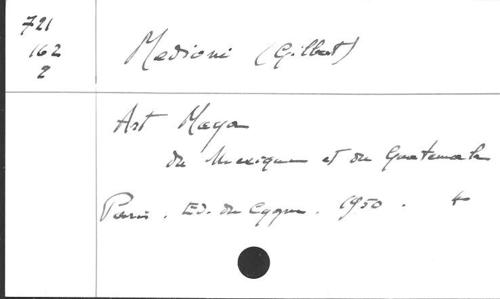 721
162
2
Medioni (Gilbert)
Art Maya
du Mexique et du Guatemala
Paris. Ed. du Cygne. 1950. 4